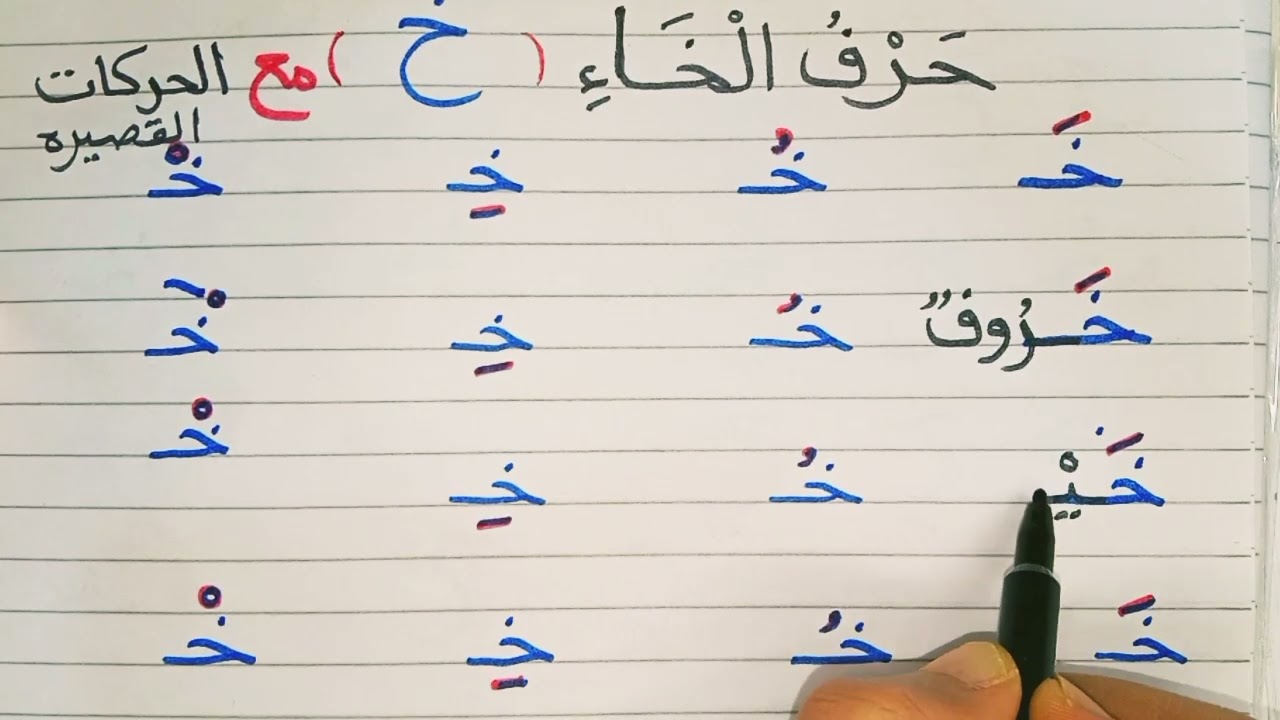 حَرْفُ الْخَاءِ (خ) مع الحركات
القصيره
خَ خُ خِ خْ
خَرُوفٌ خُ خِ خْ
خْ
خَيْ خُ خِ
خَ خُ خِ خْ